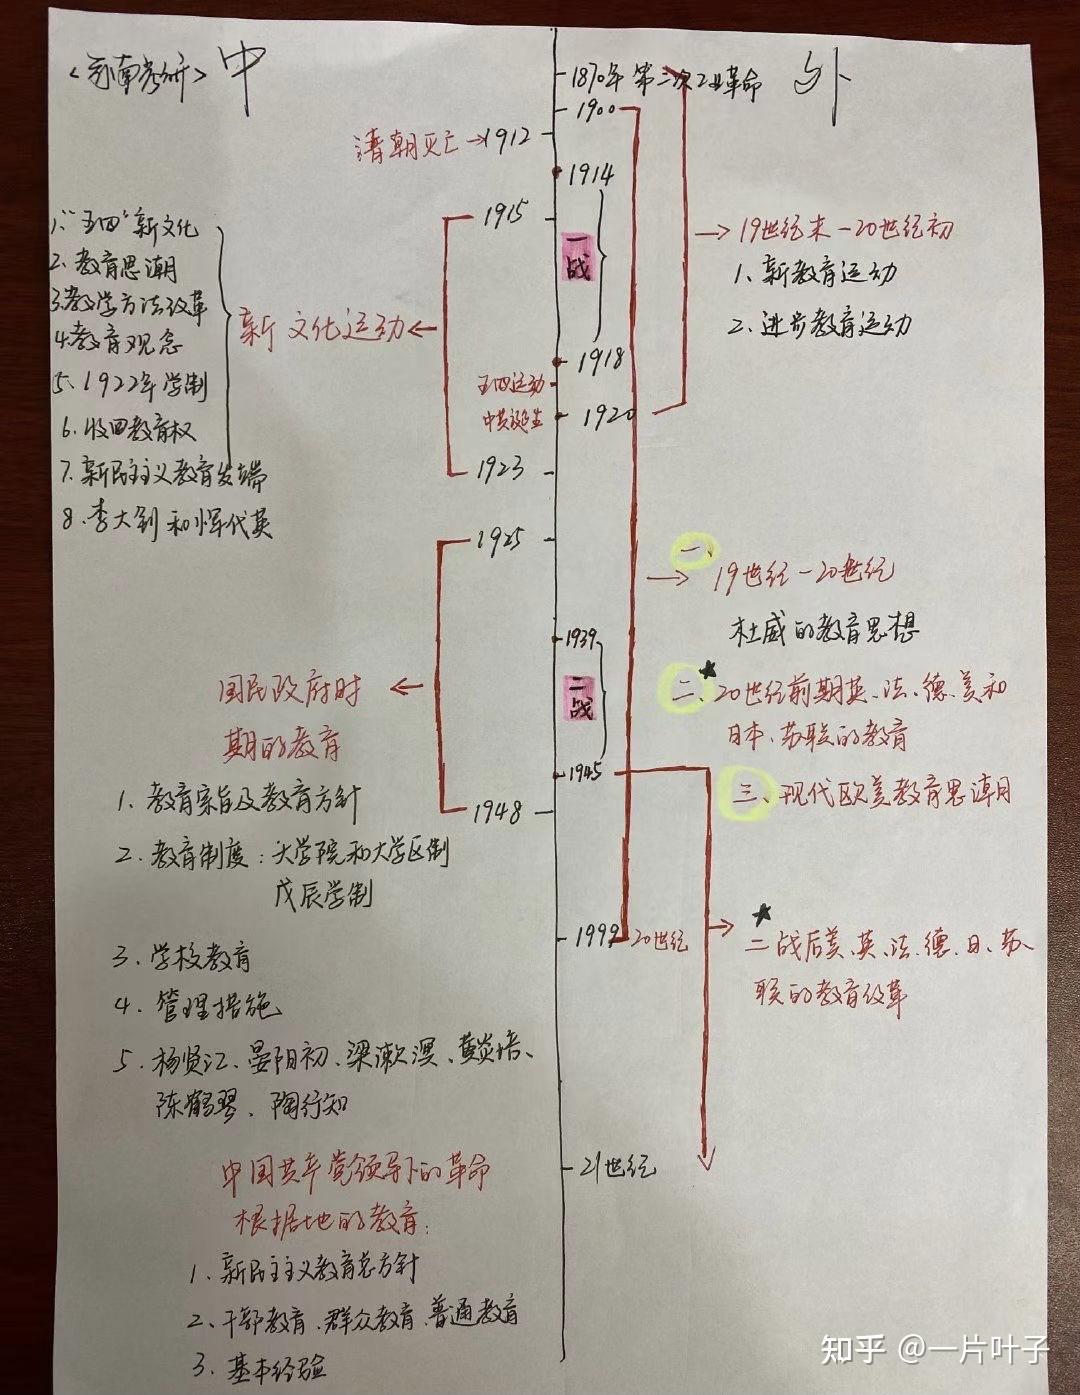 中
外
1870年 第二次工业革命
1900
清朝灭亡→1912
1914
1915
一战
1."五四"新文化
2.教育思潮
3.教学方法改革
4.教育观念
5、1922年学制
6.收回教育权
7.新民主主义教育发端
8.李大钊和恽代英
新文化运动
→19世纪末—20世纪初
1、新教育运动
2.进步教育运动
1918
五四运动
中共诞生
1920
1923
1925
一、
→19世纪—20世纪
杜威的教育思想
1939
二战
1945
★
二、20世纪前期英、法、德、美和
日本、苏联的教育
三、现代欧美教育思潮
国民政府时
期的教育
1948
1、教育宗旨及教育方针
2、教育制度:大学院和大学区制
戊辰学制
3.学校教育
4.管理措施
5.杨贤江、晏阳初、梁漱溟、黄炎培、
陈鹤琴、陶行知
1999
20世纪
★
二战后美、英、法、德、日、苏
联的教育改革
21世纪
中国共产党领导下的革命
根据地的教育:
1、新民主主义教育总方针
2、干部教育、群众教育、普通教育
3.基本经验
知乎 @一片叶子